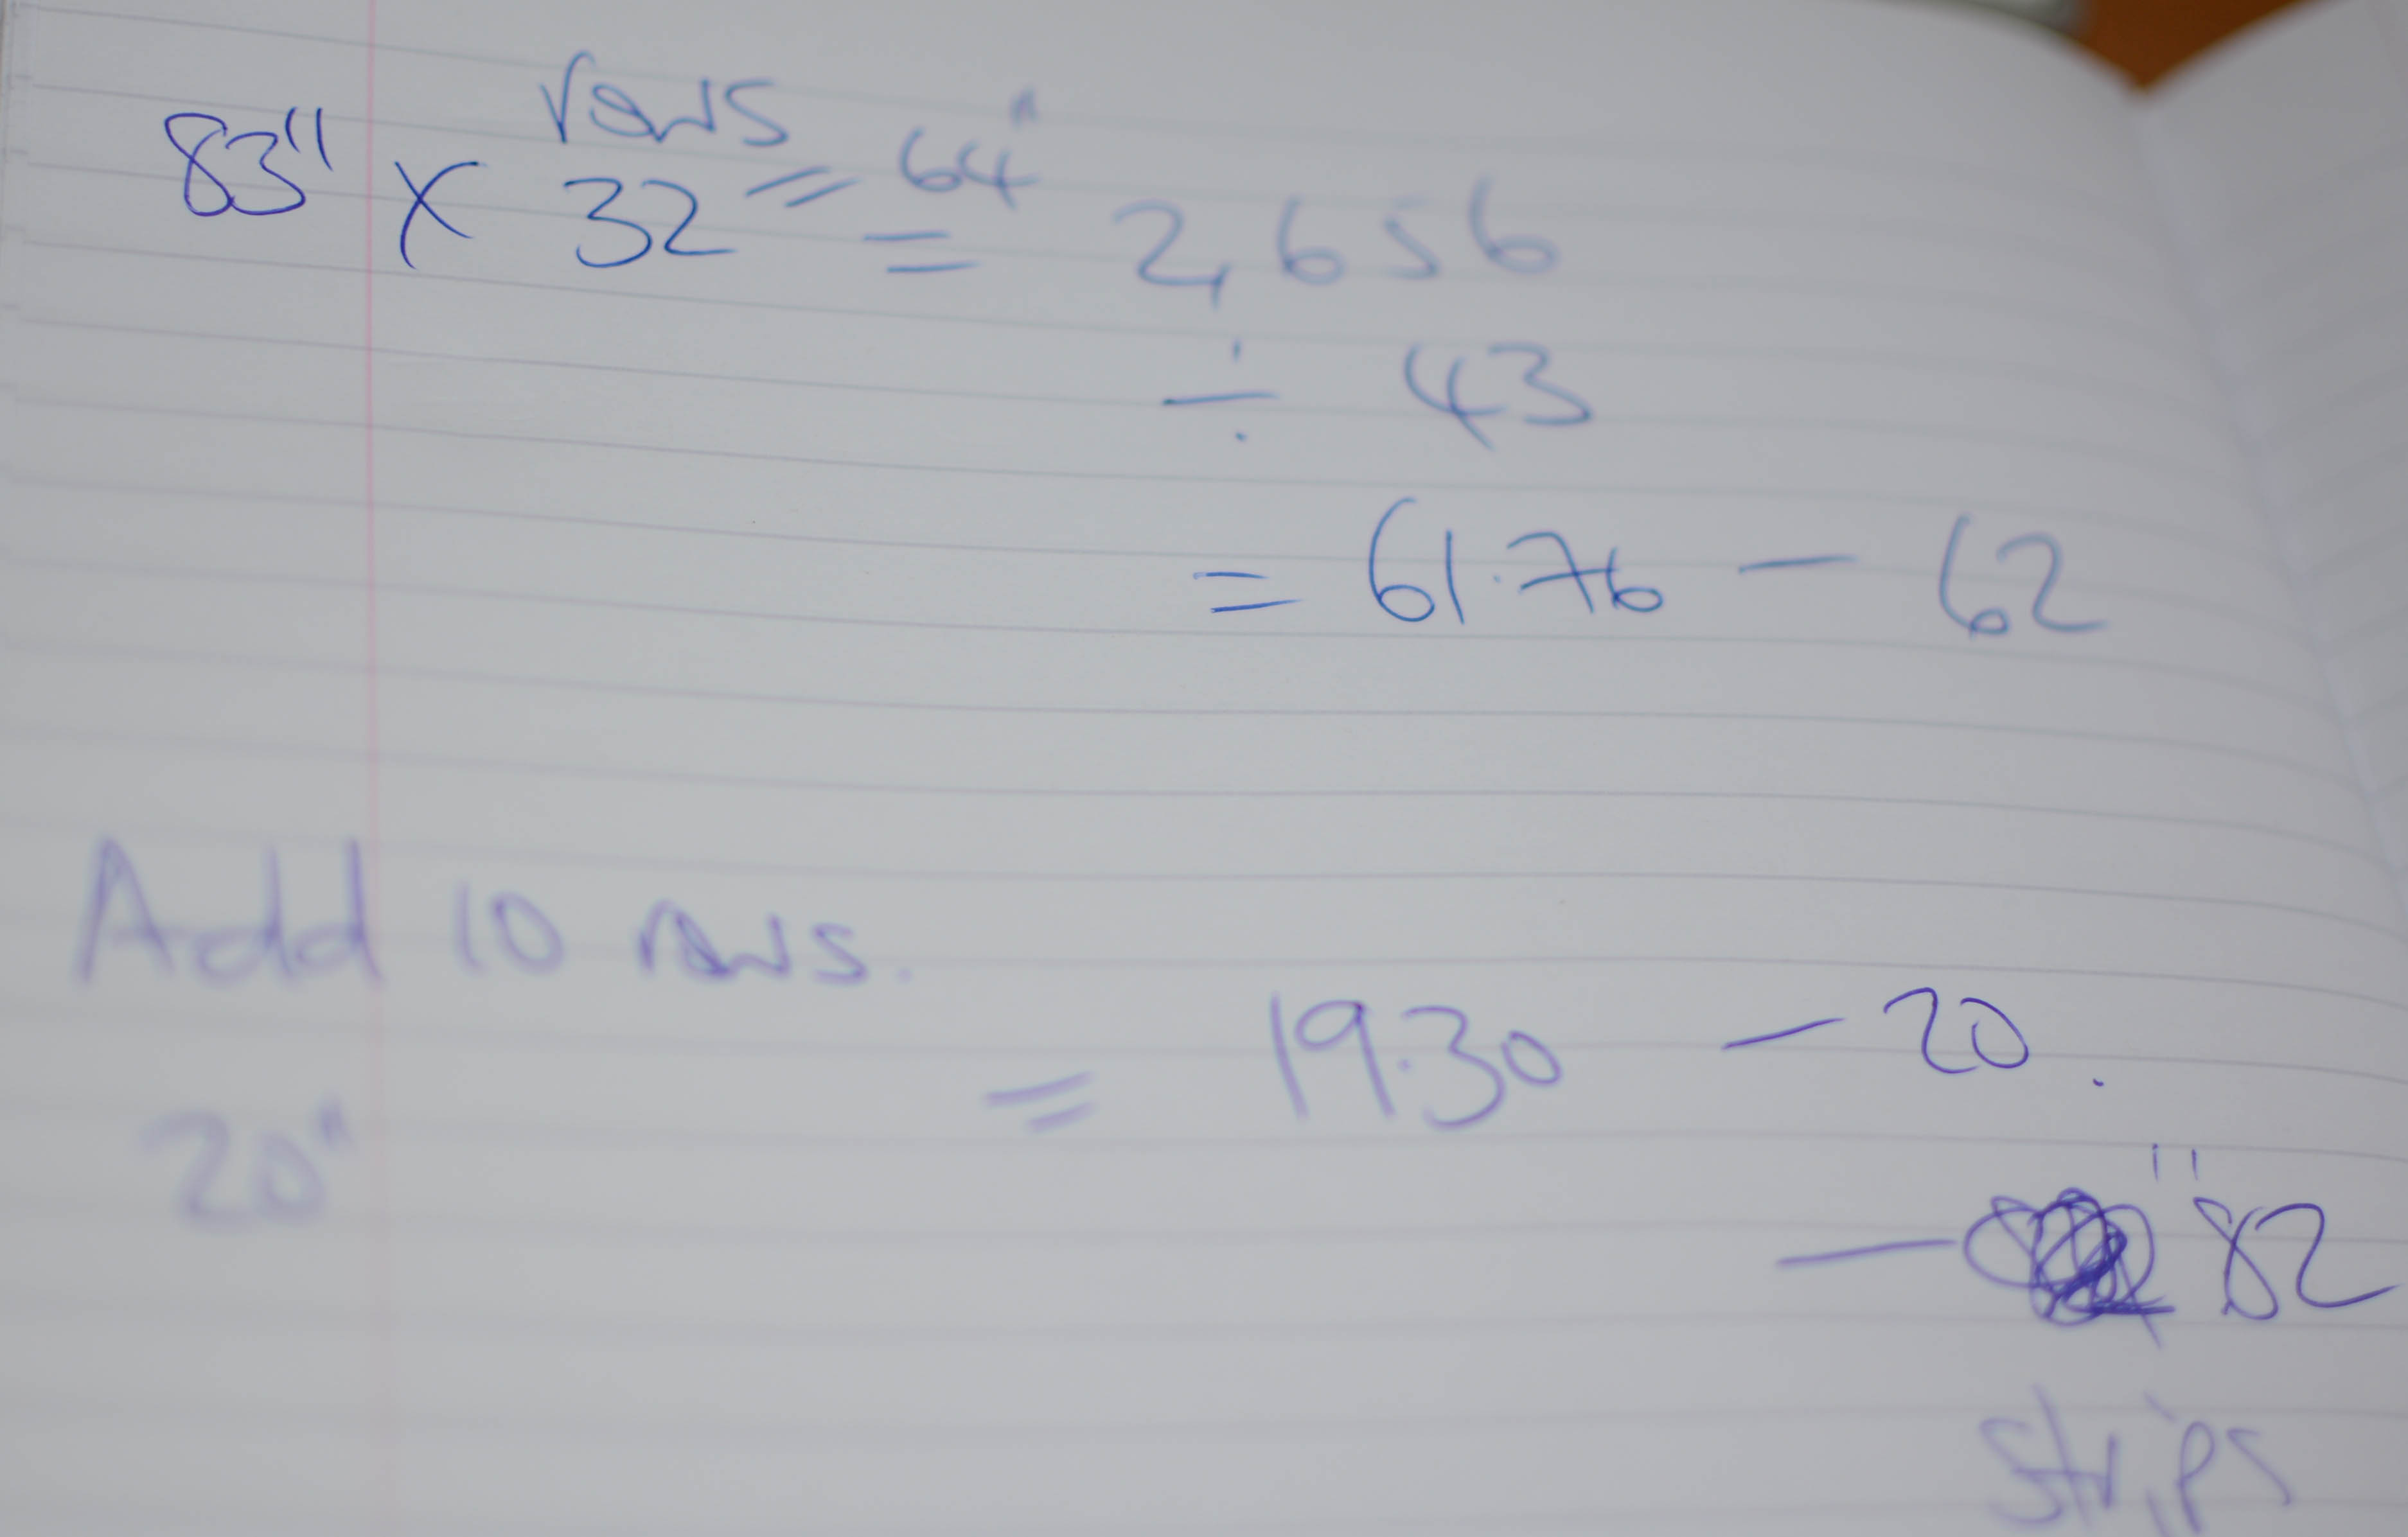 rows
83" x 32 = 64"
= 2,656
÷ 43
= 61.76 — 62
Add 10 rows.
= 19.30 — 20.
20"
— " 82
strips